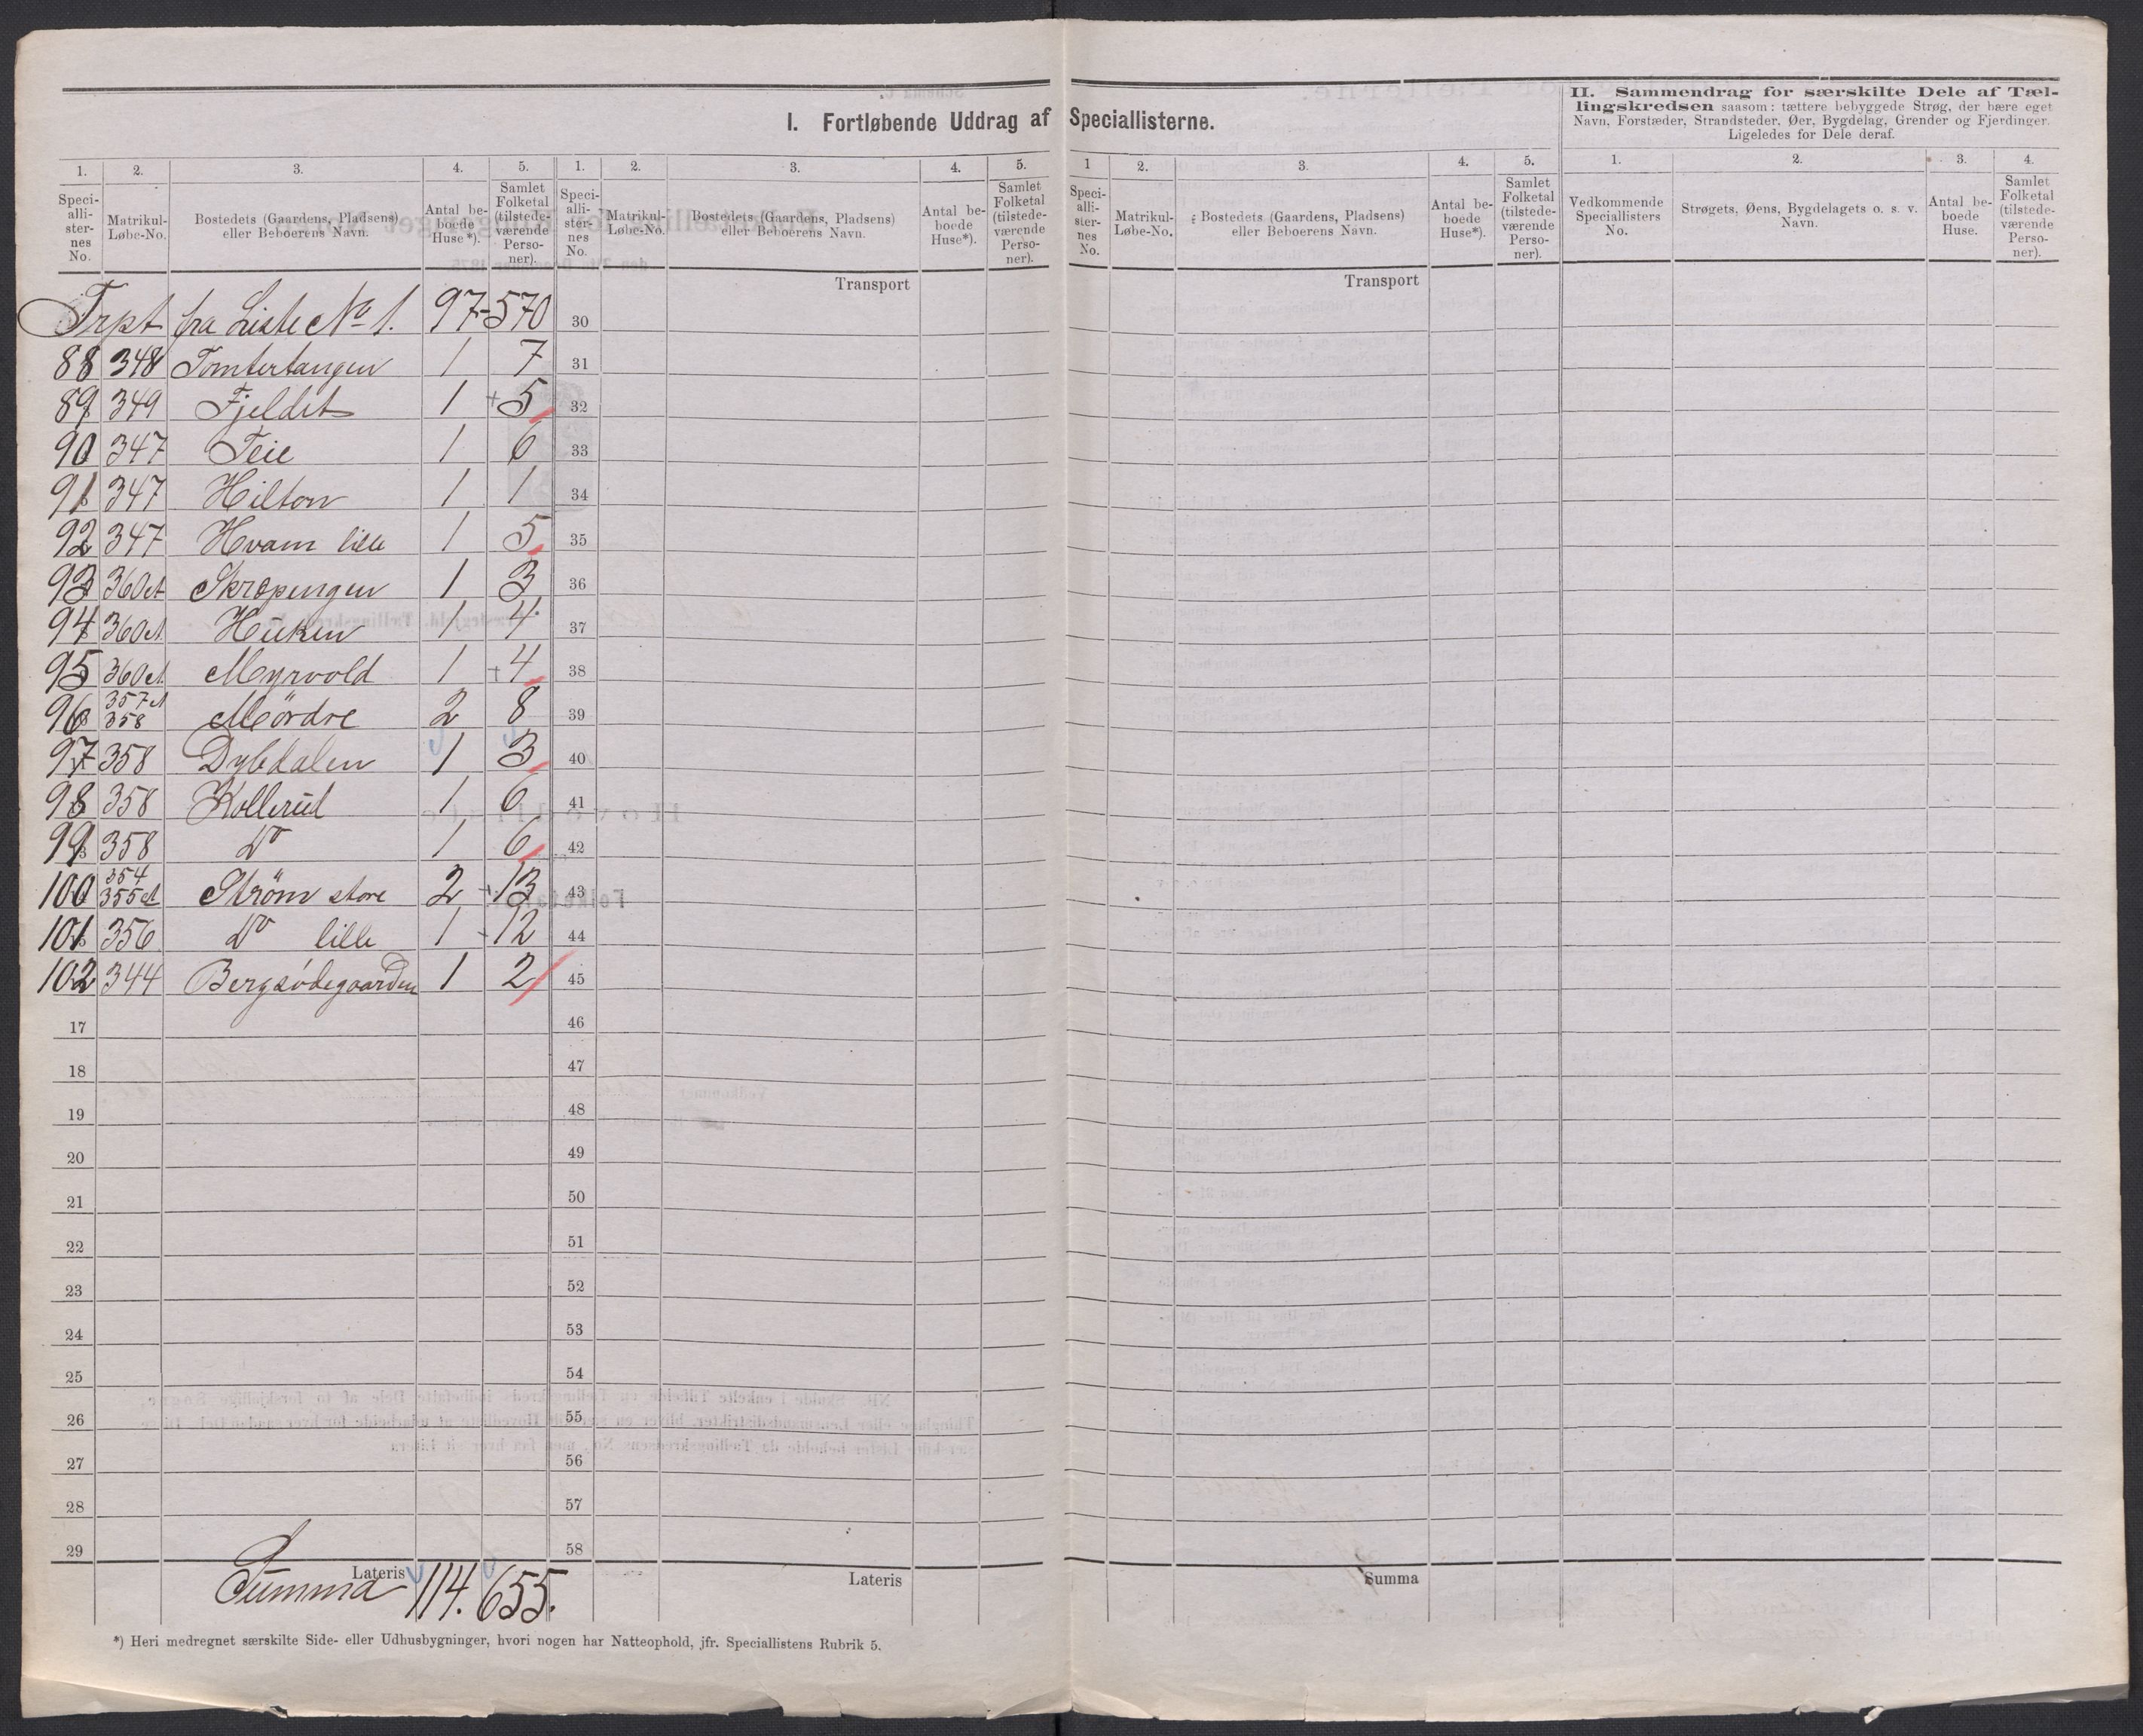 I. Fortløbende Uddrag af Speciallisterne.
II. Sammendrag for særskilte Dele af Tæl-
lingskredsen saasom: tættere bebyggede Strøg, der bære eget
Navn, Forstæder, Strandsteder, Øer, Bygdelag, Grender og Fjerdinger.
Ligeledes for Dele deraf.
1. 2. 3. 4. 5. 1. 2. 3. 4. 5. 1 2. 3. 4. 5. 1. 2. 3. 4.
Speci-alli-ster-nes No. Matrikul-Løbe-No. Bostedets (Gaardens, Pladsens) eller Beboerens Navn. Antal be-boede Huse*). Samlet Folketal (tilstede-værende Perso-ner).
Speci-alli-ster-nes No. Matrikul-Løbe-No. Bostedets (Gaardens, Pladsens) eller Beboerens Navn. Antal be-boede Huse*). Samlet Folketal (tilstede-værende Perso-ner).
Speci-alli-ster-nes No. Matrikul-Løbe-No. Bostedets (Gaardens, Pladsens) eller Beboerens Navn. Antal be-boede Huse*). Samlet Folketal (tilstede-værende Perso-ner).
Vedkommende Speciallisters No. Strøgets, Øens, Bygdelagets o. s. v. Navn. Antal be-boede Huse. Samlet Folketal (tilstede-værende Perso-ner).
Transport Transport
Trpt fra Liste No 1. 97 570 30
88 348 Tomtertangen 1 7 31
89 349 Fjeldet 1 +5 32
90 347 Teie 1 6 33
91 347 Hilton 1 1 34
92 347 Hvam lille 1 5 35
93 360A Skrapengen 1 3 36
94 360A Huken 1 4 37
95 360A Myrvold 1 +4 38
96 357A 358 Mørdre 2 8 39
97 358 Dybdalen 1 3 40
98 358 Kollerud 1 6 41
99 358 Do 1 6 42
100 354 355A Strøm store 2 +13 43
101 356 Do lille 1 12 44
102 344 Bergsødegaarden 1 2 45
17 46
18 47
19 48
20 49
21 50
22 51
23 52
24 53
25 54
26 55
27 56
28 57
29 58
Lateris Lateris Summa
Summa 114. 655.
*) Heri medregnet særskilte Side- eller Udhusbygninger, hvori nogen har Natteophold, jfr. Speciallistens Rubrik 5.